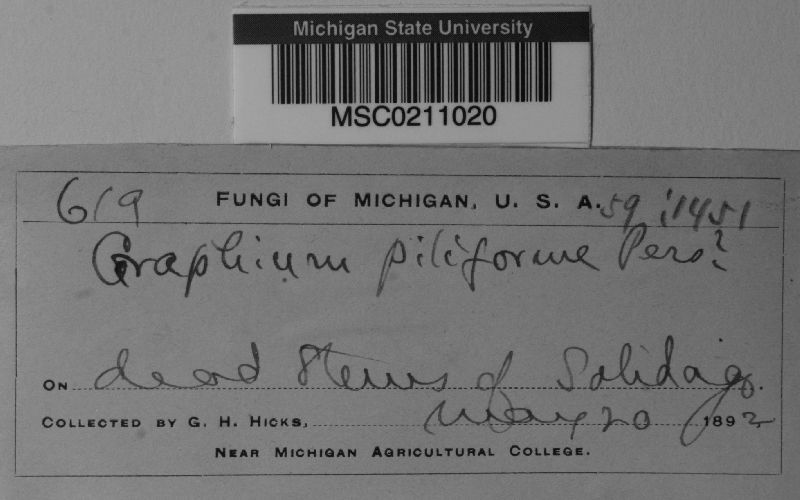 Michigan State University
MSC0211020
619 FUNGI OF MICHIGAN, U. S. A. 59:1451
Graphium piliforme Pers?
ON dead Stems of Solidago.
COLLECTED BY G. H. HICKS, May 20 1892
NEAR MICHIGAN AGRICULTURAL COLLEGE.